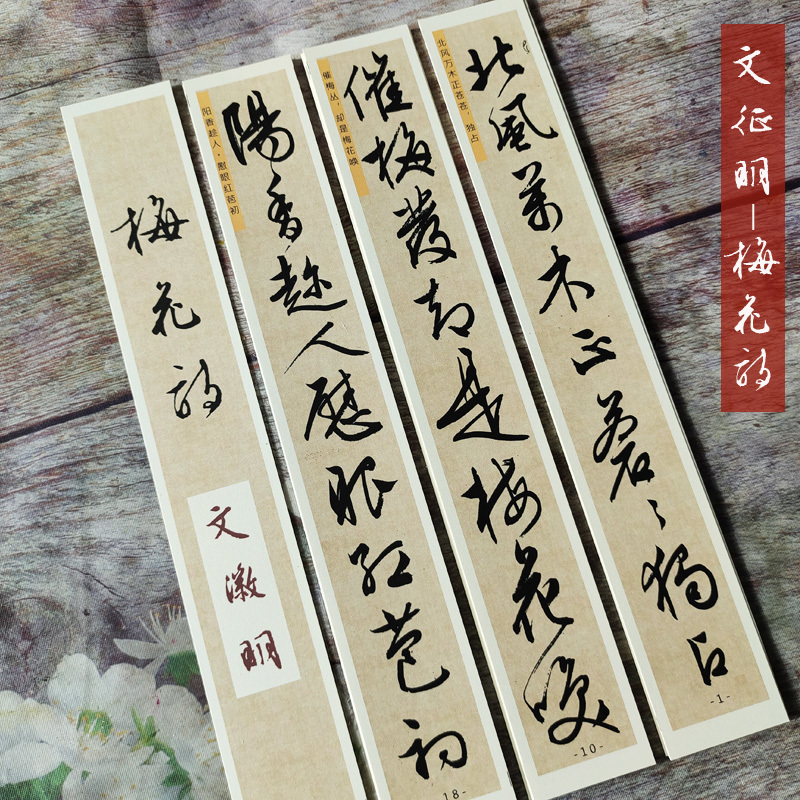 文征明—梅花詩
北风万木正苍苍，独占
北風萬木正蒼〻獨占
-1-
催梅丛，却是梅花唤
催梅發却是梅花喚
-10-
阳香趁人，慰眼红苞初
陽香趂人慰眼紅苞初
18-
梅花詩
文徵明